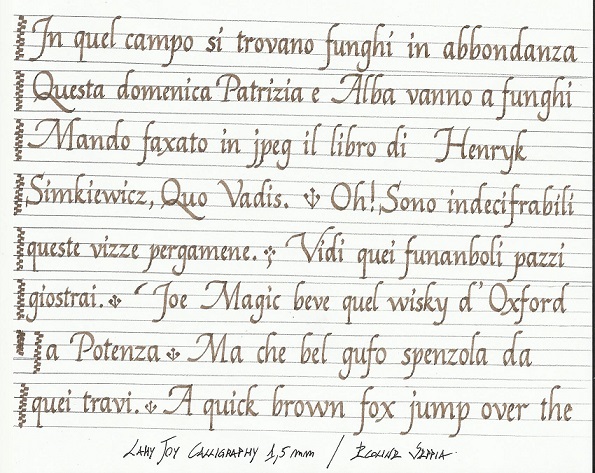 In quel campo si trovano funghi in abbondanza
Questa domenica Patrizia e Alba vanno a funghi
Mando faxato in jpeg il libro di Henryk
Simkiewicz, Quo Vadis. Oh! Sono indecifrabili
queste vizze pergamene. Vidi quei funanboli pazzi
giostrai. Joe Magic beve quel wisky d'Oxford
a Potenza Ma che bel gufo spenzola da
quei travi. A quick brown fox jump over the
LAMY JOY CALLIGRAPHY 1,5 mm /